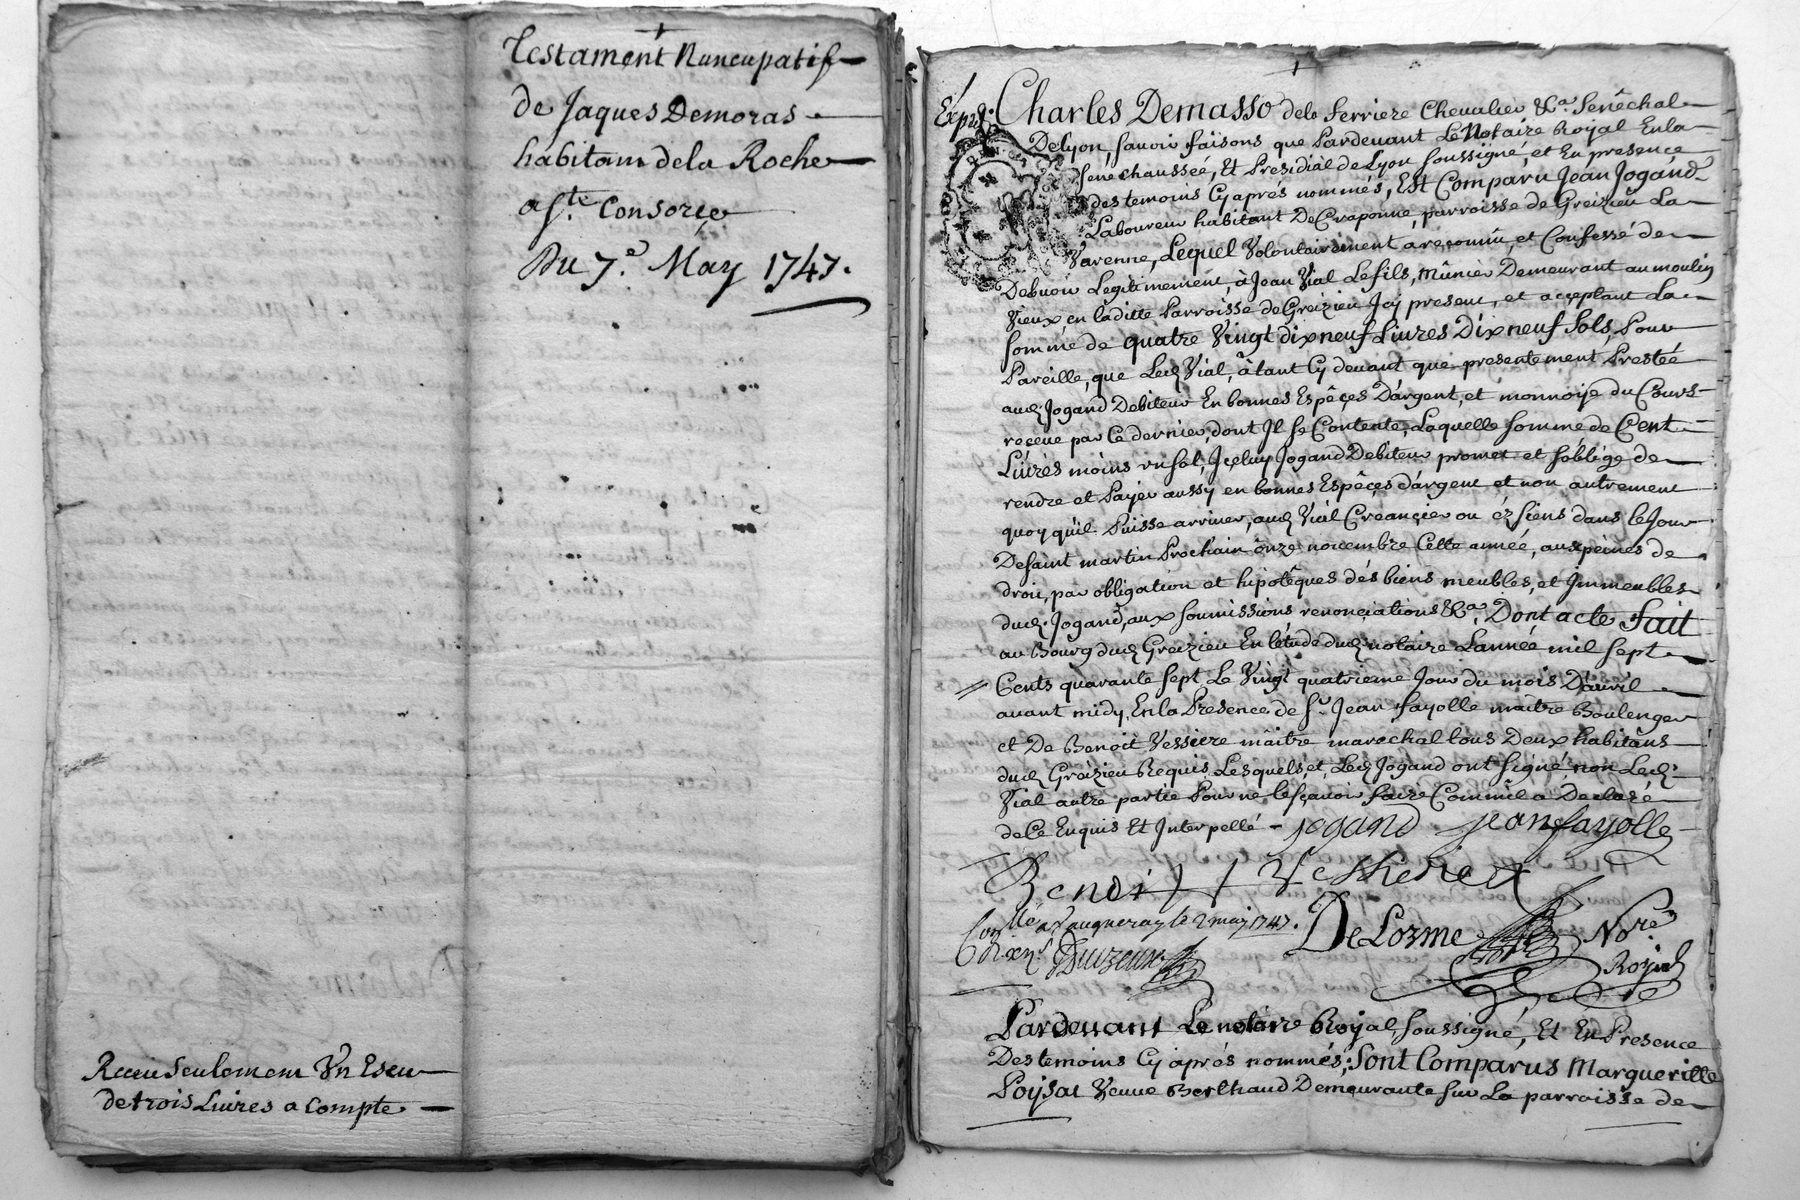 Testament Nuncupatif
de Jaques Demoras
habitant dela Roche
a Ste. Consorçe
Du 7.e May 1747.
Receu seulement Un Escu
de trois Livres a Compte
Expéd. Charles Demasso dela ferriere Chevalier &a. Senêchal
DeLyon, savoir faisons que Pardevant Le Notaire Royal En la
senechausseé, Et Présidial de Lyon soussigné, et En presence
des temoins Cy aprés nommés, Est Comparu Jean Jogand
Laboureur habitant De Craponne, parroisse de Greizieu La
Varenne, Lequel Volontairement a reconnû, et Confessé de
Debvoir Legitimement, à Jean Vial Le fils, Mûnier Demeurant au moulin
Vieux, en laditte Parroisse de Greizieu Jcy present, et acceptant La
somme de quatre Vingt dix neuf Livres Dix neuf sols, Pour
Pareille, que Led. Vial, à tant Cy devant que presentement Prestée
aud. Jogand Debiteur En bonnes Espêçes D'argent, et monnoye du Cours
reçeüe par Ce dernier, dont Jl se Contente, Laquelle somme de Cent
Livres moins un sol, Jçeluy Jogand Debiteur promet et s'oblige de
rendre et Payer aussy en bonnes Espêçes d'argent et non autrement
quoy qu'il Puisse arriver, aud. Vial Creançier ou éz siens dans le Jour
De saint martin Prochain onze novembre Cette année, aux peines de
droit, par obligation et hipotêques dés biens meubles, et Jmmeubles
dud. Jogand, aux soumissions renonçiations &a. Dont acte Fait
au Bourg dud. Greizieu En l'étude dud. notaire L'année mil sept
Cents quarante sept Le Vingt quatrieme Jour du mois D'avril
avant midy, En la Presence de Sr. Jean fayolle maître Boulenger
et De Benoit Vessiere mâitre marechal tous Deux habitâns
dud. Greizieu Requis, Lesquels, et, Led. Jogand ont signé, non Led.
Vial autre partie Pour ne le sçavoir faire Comm'il a Declaré
de Ce Enquis Et Jnterpellé - jogand jean fayolle
Benoit
Conllé a Vaugneray le 2 may 1747.
DeLorme Nore.
Royal
Pardevant Le notaire Royal, soussigné, Et En Presence
Des temoins Cy aprés nommés; Sont Comparus Margueritte
Poysat Veuve Berthaud Demeurante sur La parroisse de